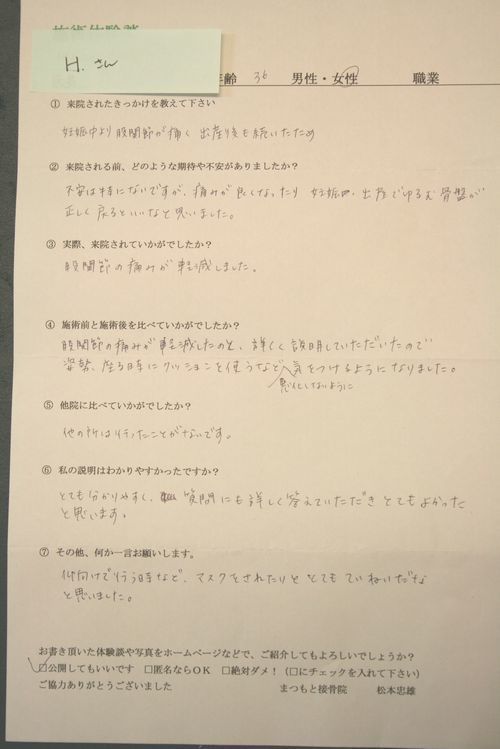 施術体験談
H.さん
年齢 36 男性・女性 職業
① 来院されたきっかけを教えて下さい
妊娠中より股関節が痛く出産後も続いたため
② 来院される前、どのような期待や不安がありましたか？
不安は特にないですが、痛みが良くなったり妊娠・出産でゆるむ骨盤が
正しく戻るといいなと思いました。
③ 実際、来院されていかがでしたか？
股関節の痛みが軽減しました。
④ 施術前と施術後を比べていかがでしたか？
股関節の痛みが軽減したのと、詳しく説明していただいたので
姿勢、座る時にクッションを使うなど気をつけるようになりました。
悪化しないように
⑤ 他院に比べていかがでしたか？
他の所は行ったことがないです。
⑥ 私の説明はわかりやすかったですか？
とても分かりやすく、質問にも詳しく答えていただきとてもよかった
と思います。
⑦ その他、何か一言お願いします。
仰向けで行う時など、マスクをされたりととてもていねいだな
と思いました。
お書き頂いた体験談や写真をホームページなどで、ご紹介してもよろしいでしょうか？
☐公開してもいいです ☐匿名ならＯＫ ☐絶対ダメ！（☐にチェックを入れて下さい）
ご協力ありがとうございました まつもと接骨院 松本忠雄